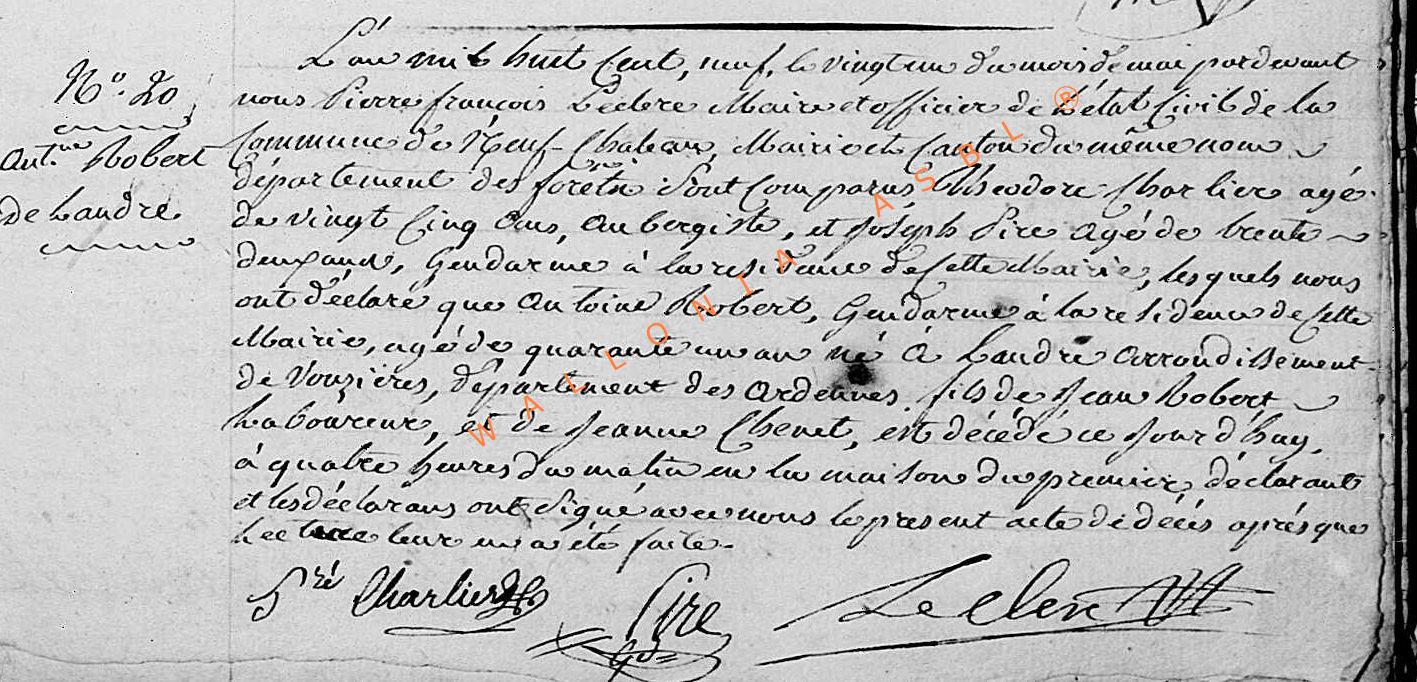 N.º 20
Ant.ne Robert
de Landre
L'an mil huit Cent, neuf, le vingt un du mois de mai pardevant
nous Pierre françois Leclere Maire et officier de L'état Civil de la
Commune de Neuf-Chateau, Mairie et Canton du même nom
département des forêts Sont Comparus Theodore Charlier agé
de vingt Cinq ans, aubergiste, et Joseph Pire agé de trente
deux ans, Gendarme à la residence de Cette Mairie, lesquels nous
ont déclaré que Antoine Robert, Gendarme à la residence de Cette
Mairie, agé de quarante un an né à Landre arrondissement
de Vouzières, département des Ardennes, fils de Jean Robert
Laboureur, et de Jeanne Chenet, est décédé ce Jour d'huy,
à quatre heures du matin en la maison du premier déclarant
et les déclarans ont Signé avec nous le present acte de décès aprés que
Lecture leur en a été faite.
Charlier
Pire
Leclere
WALLONIA ASBL ®